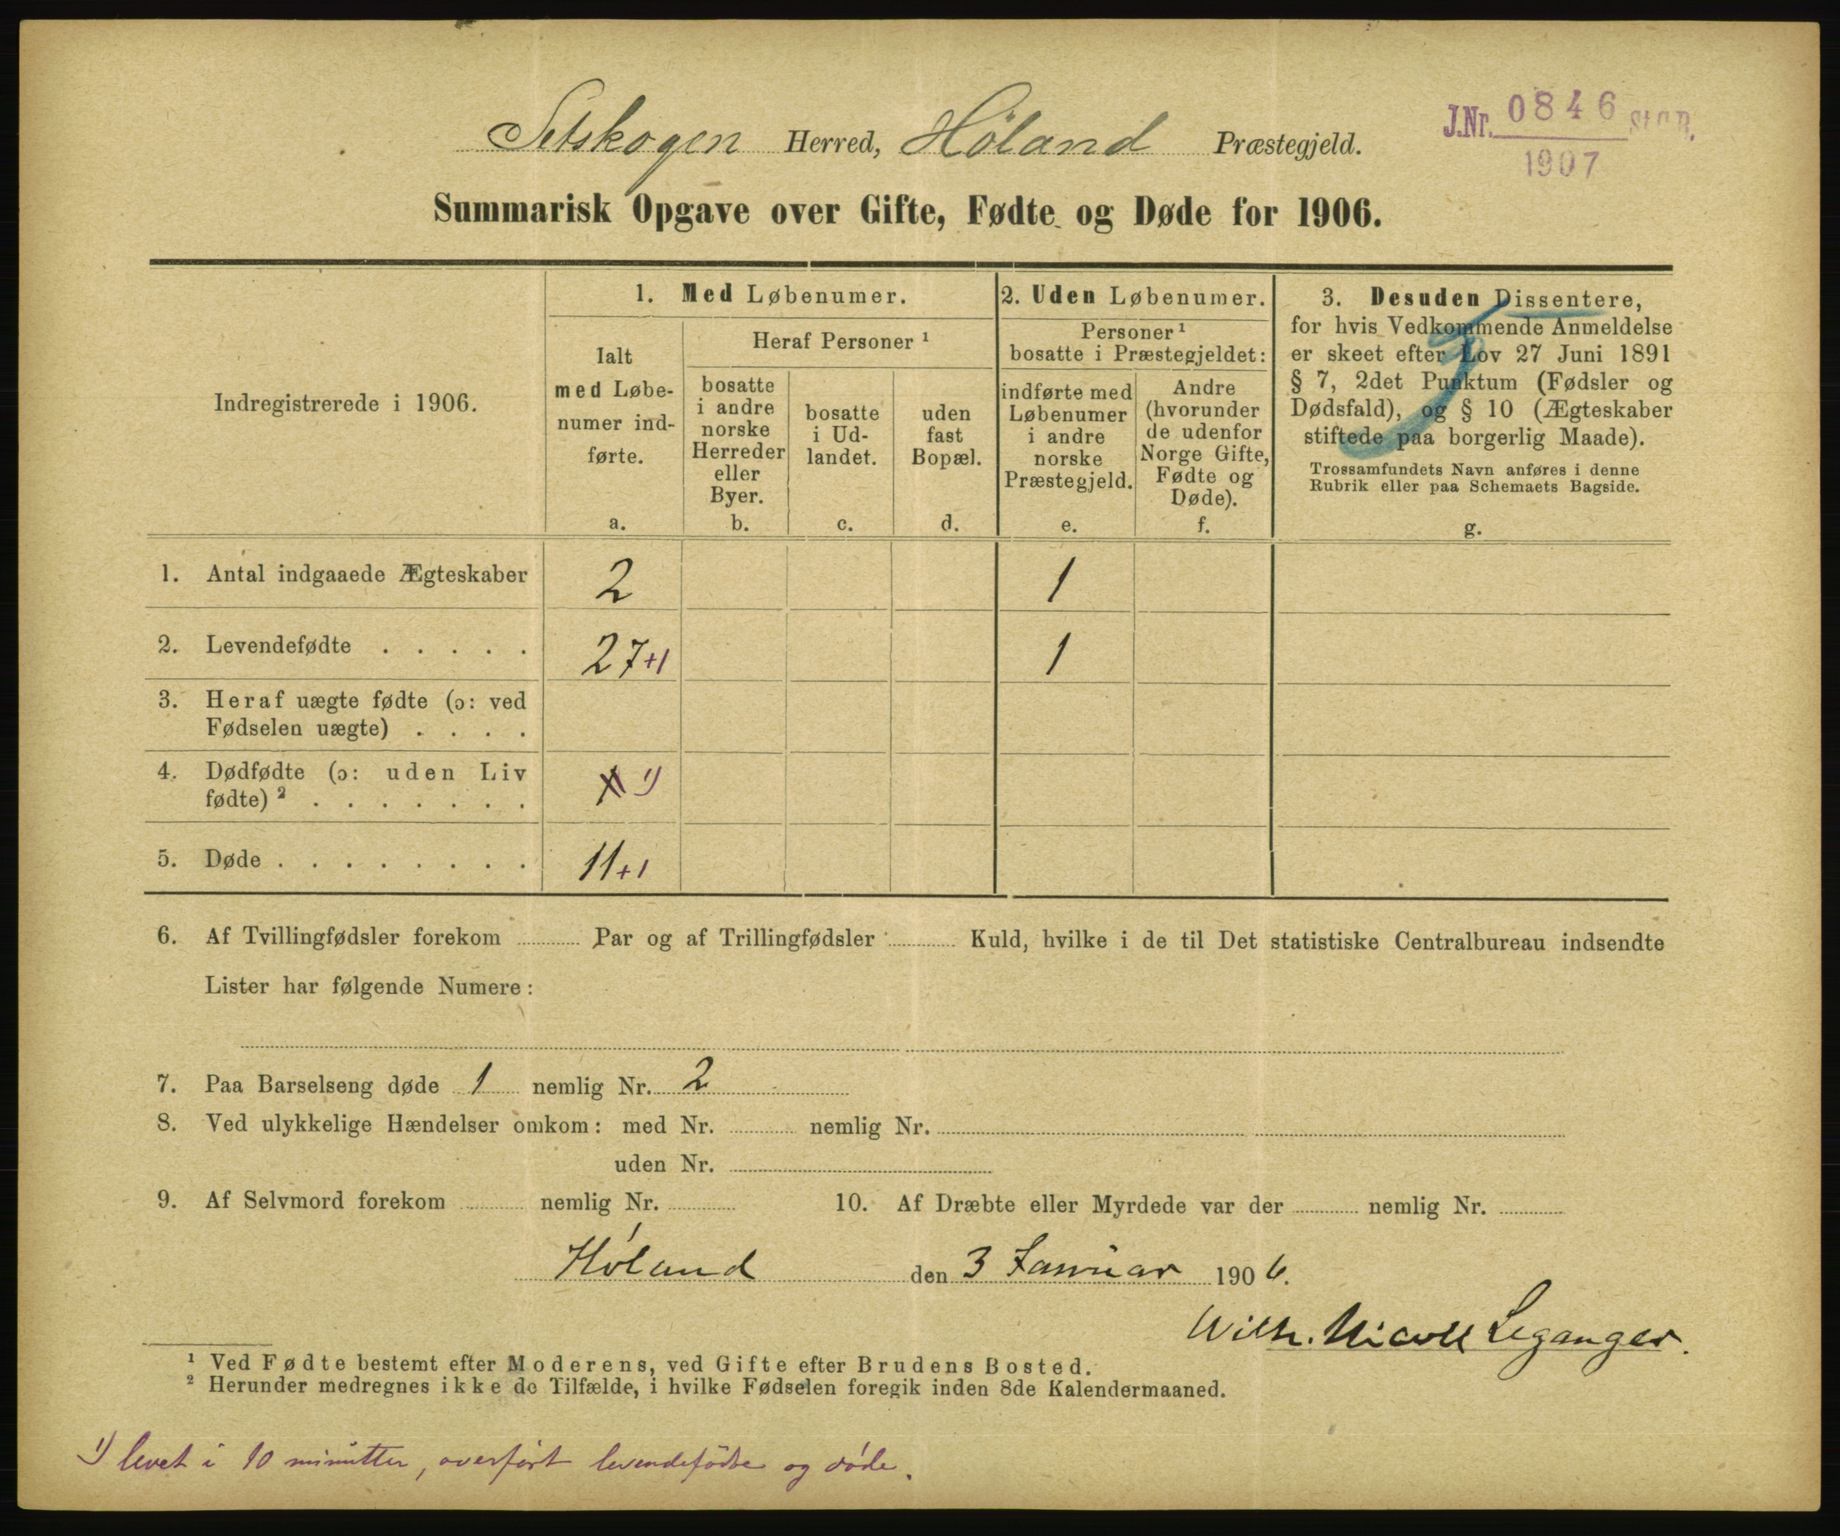 Setskogen Herred, Höland Præstegjeld.
J.Nr. 0846 St.C.B.
1907
Summarisk Opgave over Gifte, Fødte og Døde for 1906.
Indregistrerede i 1906.
1. Med Løbenumer.
Ialt
med Løbe-
numer ind-
førte.
a.
Heraf Personer ¹
bosatte
i andre
norske
Herreder
eller
Byer.
b.
bosatte
i Ud-
landet.
c.
uden
fast
Bopæl.
d.
2. Uden Løbenumer.
Personer ¹
bosatte i Præstegjeldet:
indførte med
Løbenumer
i andre
norske
Præstegjeld.
e.
Andre
(hvorunder
de udenfor
Norge Gifte,
Fødte og
Døde).
f.
3. Desuden Dissentere,
for hvis Vedkommende Anmeldelse
er skeet efter Lov 27 Juni 1891
§ 7, 2det Punktum (Fødsler og
Dødsfald), og § 10 (Ægteskaber
stiftede paa borgerlig Maade).
Trossamfundets Navn anføres i denne
Rubrik eller paa Schemaets Bagside.
g.
1. Antal indgaaede Ægteskaber 2 1
2. Levendefødte . . . . . 27+1 1
3. Heraf uægte fødte (ɔ: ved
Fødselen uægte) . . . .
4. Dødfødte (ɔ: uden Liv
fødte) ² . . . . . . . 1 ¹)
5. Døde . . . . . . . . 11+1
6. Af Tvillingfødsler forekom ........ Par og af Trillingfødsler ........ Kuld, hvilke i de til Det statistiske Centralbureau indsendte
Lister har følgende Numere:
7. Paa Barselseng døde 1 nemlig Nr. 2
8. Ved ulykkelige Hændelser omkom: med Nr. ........ nemlig Nr. ........
uden Nr. ........
9. Af Selvmord forekom ........ nemlig Nr. ........ 10. Af Dræbte eller Myrdede var der ........ nemlig Nr. ........
Höland den 3 Januar 1906.
Wilh. Nicoll Leganger.
¹ Ved Fødte bestemt efter Moderens, ved Gifte efter Brudens Bosted.
² Herunder medregnes ikke de Tilfælde, i hvilke Fødselen foregik inden 8de Kalendermaaned.
¹) levet i 10 minutter, overført levendefødte og døde.